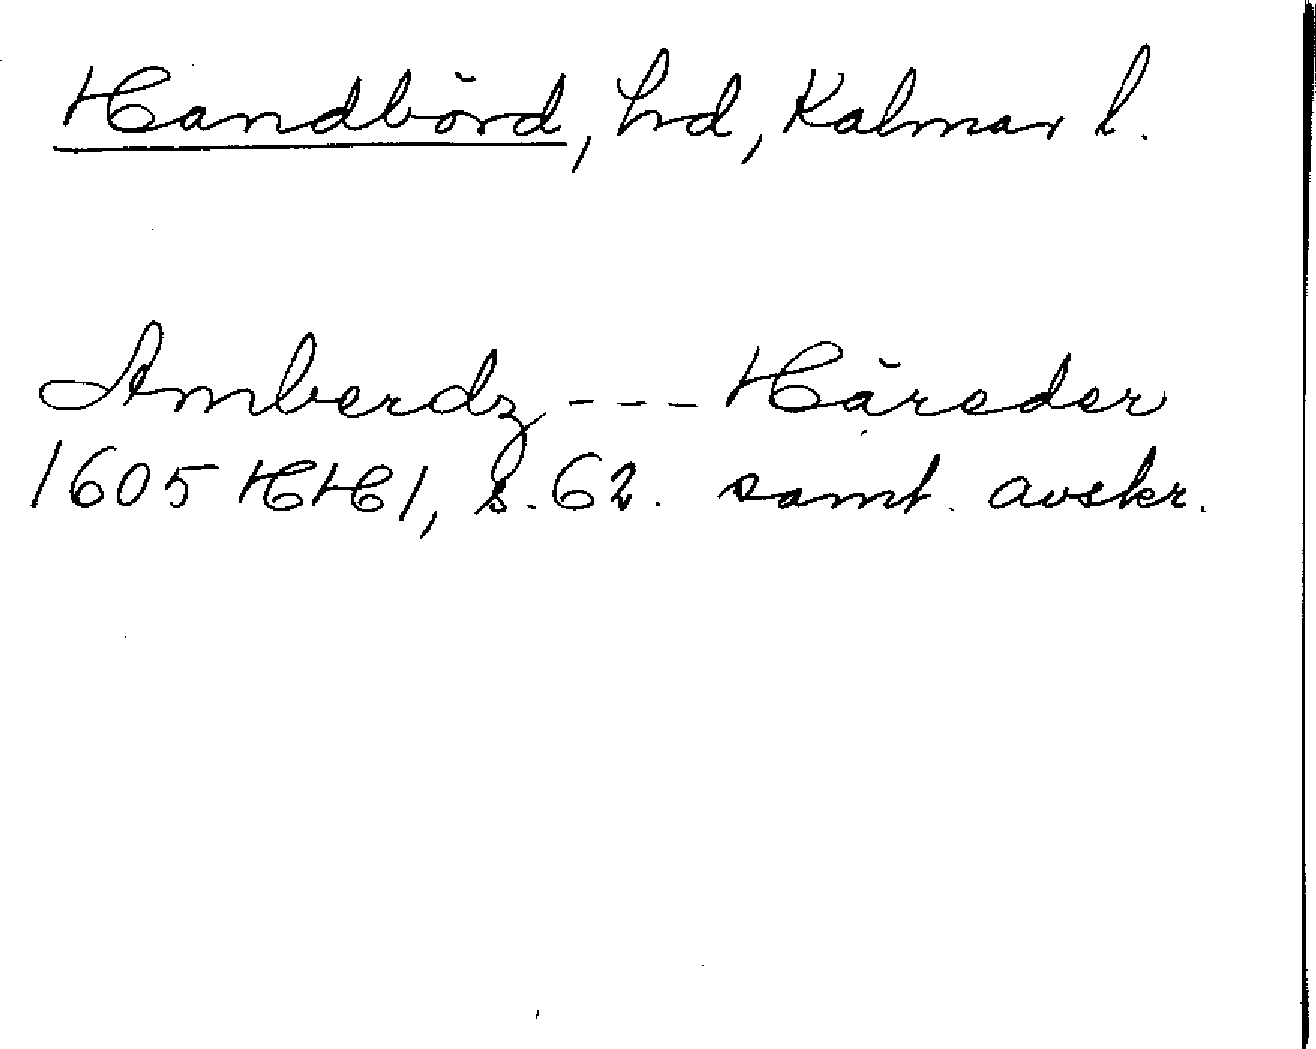 Handbörd, hrd, Kalmar l.
Amberdz --- Häreder
1605 HH1, s. 62. samt. avskr.